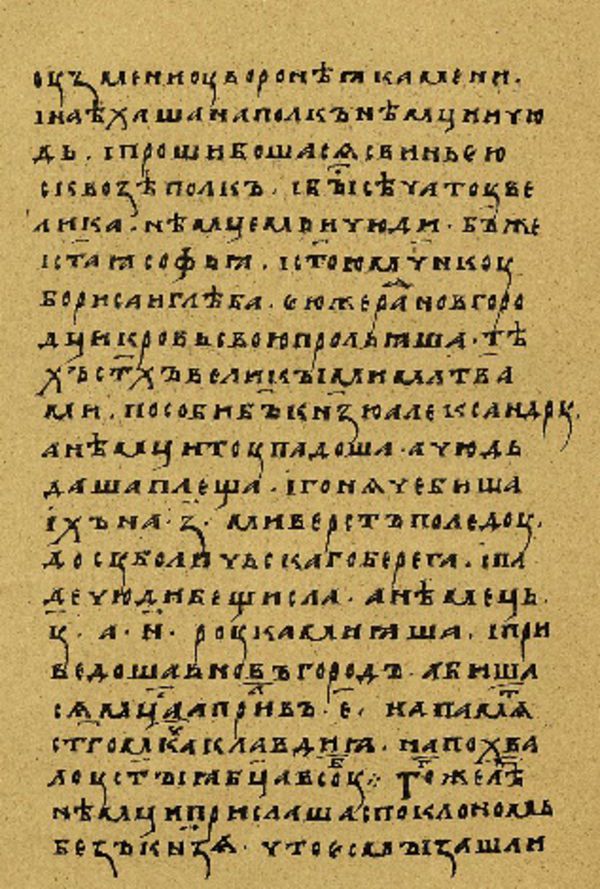 оузмени оу воронѣꙗ камени.
і наѣхаша на полкъ нѣмци и чю
дь. і прошибошасѧ свиньею
сквозѣ полкъ. і бы҇ сѣча тоу ве
лика. нѣмцемъ и чюди. б҃ъ же
і ст҃аꙗ софьꙗ. і ст҃ою мч҃нкоу
бориса и глѣба. еюже раⷣ новгоро
дци кровь свою прольꙗша. тѣ
хъ ст҃хъ великыми млт҃ва
ми. пособи б҃ъ кн҃зю александроу.
а нѣмци тоу падоша. а чюдь
даша плеща. і гонѧче биша
іхъ на .з҃. ми верстъ по ледоу.
до соуболичьскаго берега. і па
де чюди бещисла. а нѣмець.
у҃. а .н҃. роуками ꙗша. і при
ведоша в новъгородъ. а биша
сѧ мц҃а априⷧ въ .е҃. на памѧⷮ
ст҃го мч҃ка клавдиꙗ. на похва
лоу ст҃ыꙗ бц҃а в соуⷠ. Тоⷢ же лѣⷮ
нѣмци прислаша с поклономь
безъ кн҃зѧ. что есмы зашли